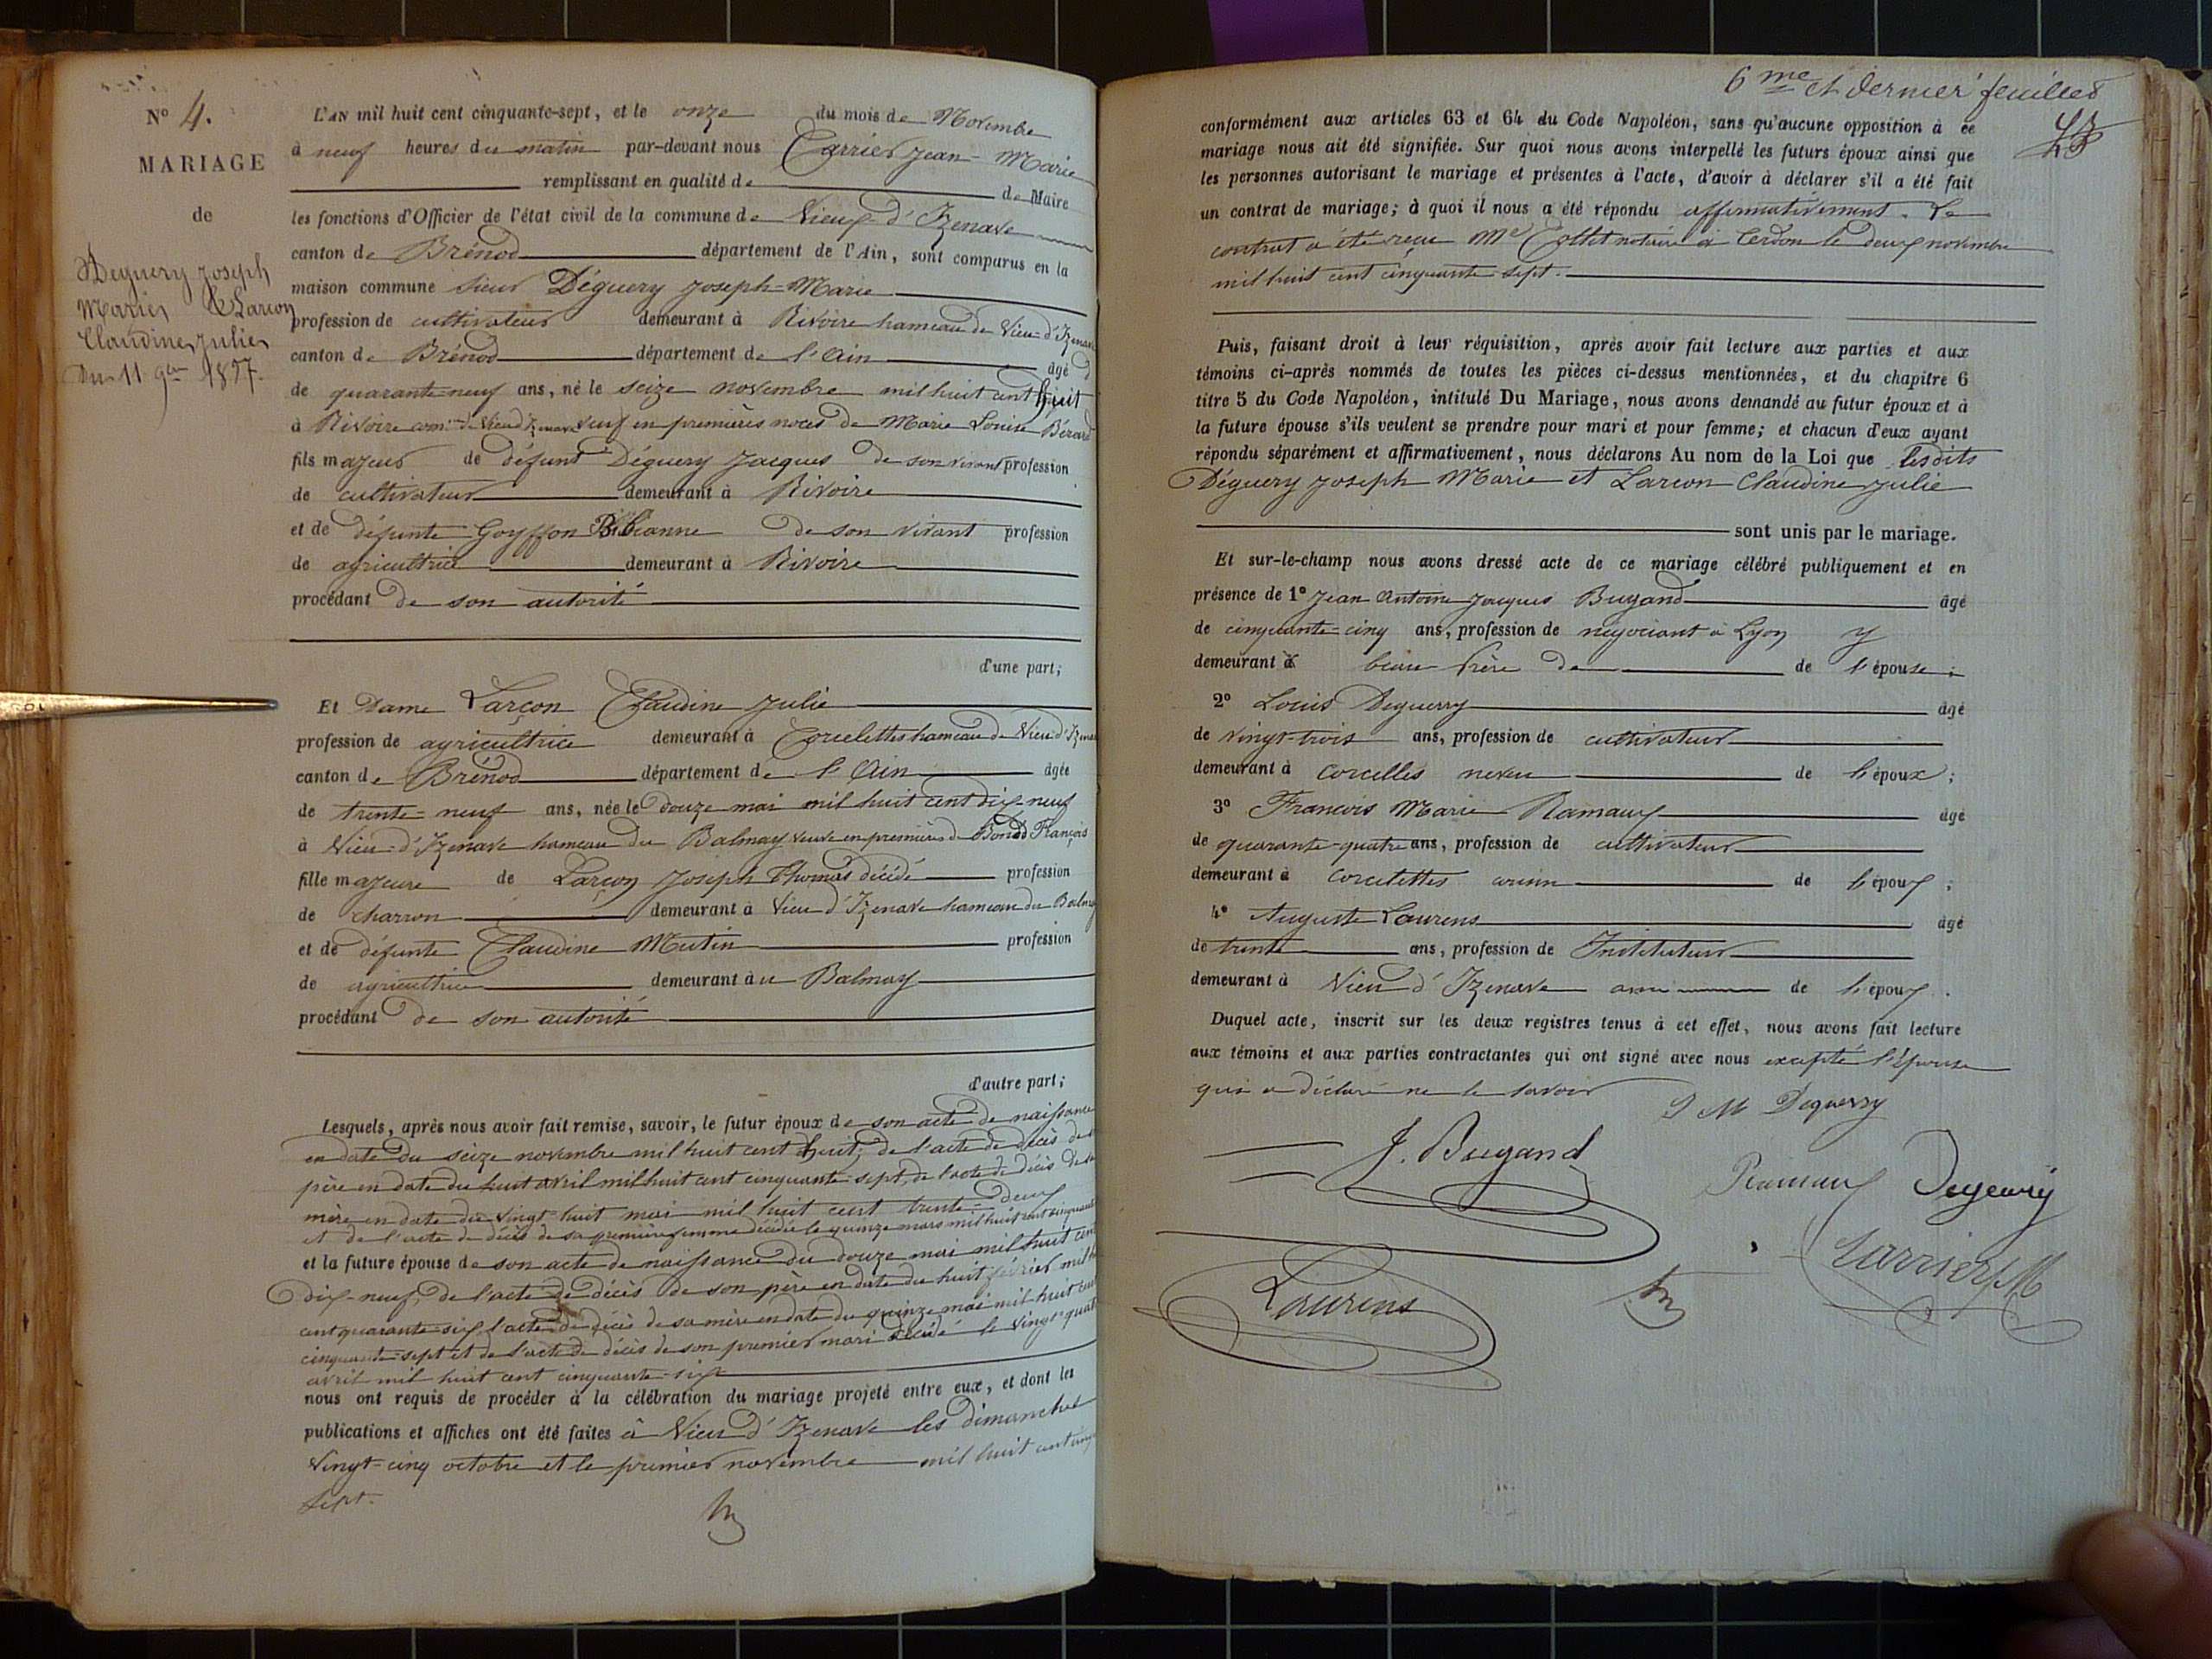 N° 4.
MARIAGE
de
Déguery Joseph
Marie & Larçon
Claudine Julie
Du 11 9bre 1857.
L'AN mil huit cent cinquante-sept, et le onze du mois de Novembre
à neuf heures du matin par-devant nous Carrier Jean-Marie
remplissant en qualité de de Maire
les fonctions d'Officier de l'état civil de la commune de Vieu-d'Izenave
canton de Brénod département de l'Ain, sont comparus en la
maison commune sieur Déguery Joseph-Marie
profession de cultivateur demeurant à Rivoire hameau de Vieu-d'Izenave
canton de Brénod département de l'Ain âgé d
de quarante-neuf ans, né le seize novembre mil huit cent huit
à Rivoire com.ne de Vieu d'Izenave veuf en premières noces de Marie Louise Bérard
fils majeur de défunt Déguery Jacques de son vivant profession
de cultivateur demeurant à Rivoire
et de défunte Goyffon Bibianne de son vivant profession
de agricultrice demeurant à Rivoire
procédant de son autorité
d'une part;
Et Dame Larçon Claudine Julie
profession de agricultrice demeurant à Corcelettes hameau de Vieu d'Izenave
canton de Brénod département de l'Ain âgée
de trente-neuf ans, née le douze mai mil huit cent dix-neuf
à Vieu-d'Izenave hameau du Balmay veuve en premières de Bondo François
fille majeure de Larçon Joseph Thomas décédé profession
de charron demeurant à Vieu d'Izenave hameau du Balmay
et de défunte Claudine Mutin profession
de agricultrice demeurant au Balmay
procédant de son autorité
d'autre part;
Lesquels, après nous avoir fait remise, savoir, le futur époux de son acte de naissance
en date du seize novembre mil huit cent huit; de l'acte de décès de
père en date du huit avril mil huit cent cinquante-sept, de l'acte de décès de sa
mère en date du vingt-huit mai mil huit cent trente-deux
et de l'acte de décès de sa première femme décédée le quinze mars mil huit cent cinquante
et la future épouse de son acte de naissance du douze mai mil huit cent
dix-neuf, de l'acte de décès de son père en date du huit février mil huit
cent quarante-six l'acte de décès de sa mère en date du quinze mai mil huit cent
cinquante-sept et de l'acte de décès de son premier mari décédé le vingt-quatre
avril mil huit cent cinquante-six
nous ont requis de procéder à la célébration du mariage projeté entre eux, et dont les
publications et affiches ont été faites à Vieu d'Izenave les dimanches
vingt-cinq octobre et le premier novembre mil huit cent cinq
sept.
6me et dernier feuillet
conformément aux articles 63 et 64 du Code Napoléon, sans qu'aucune opposition à ce
mariage nous ait été signifiée. Sur quoi nous avons interpellé les futurs époux ainsi que
les personnes autorisant le mariage et présentes à l'acte, d'avoir à déclarer s'il a été fait
un contrat de mariage; à quoi il nous a été répondu affirmativement. Le
contrat a été reçu Me Collet notaire à Cerdon le deux novembre
mil huit cent cinquante-sept.
Puis, faisant droit à leur réquisition, après avoir fait lecture aux parties et aux
témoins ci-après nommés de toutes les pièces ci-dessus mentionnées, et du chapitre 6
titre 5 du Code Napoléon, intitulé Du Mariage, nous avons demandé au futur époux et à
la future épouse s'ils veulent se prendre pour mari et pour femme; et chacun d'eux ayant
répondu séparément et affirmativement, nous déclarons Au nom de la Loi que lesdits
Déguery Joseph Marie et Larçon Claudine Julie
sont unis par le mariage.
Et sur-le-champ nous avons dressé acte de ce mariage célébré publiquement et en
présence de 1° Jean Antoine Jacques Bugand âgé
de cinquante-cinq ans, profession de négociant à Lyon y
demeurant à beau frère de de l'épouse;
2° Louis Deguerry âgé
de vingt-trois ans, profession de cultivateur
demeurant à Corcelles neveu de l'époux;
3° Francois Marie Ramaux âgé
de quarante-quatre ans, profession de cultivateur
demeurant à Corcelettes cousin de l'époux;
4° Auguste Laurens âgé
de trente ans, profession de Instituteur
demeurant à Vieu d'Izenave ami de l'époux.
Duquel acte, inscrit sur les deux registres tenus à cet effet, nous avons fait lecture
aux témoins et aux parties contractantes qui ont signé avec nous excepté l'épouse
qui a déclaré ne le savoir
J M Deguerry
J. Bugand
Ramaux Deguery
Laurens
Carrier JM